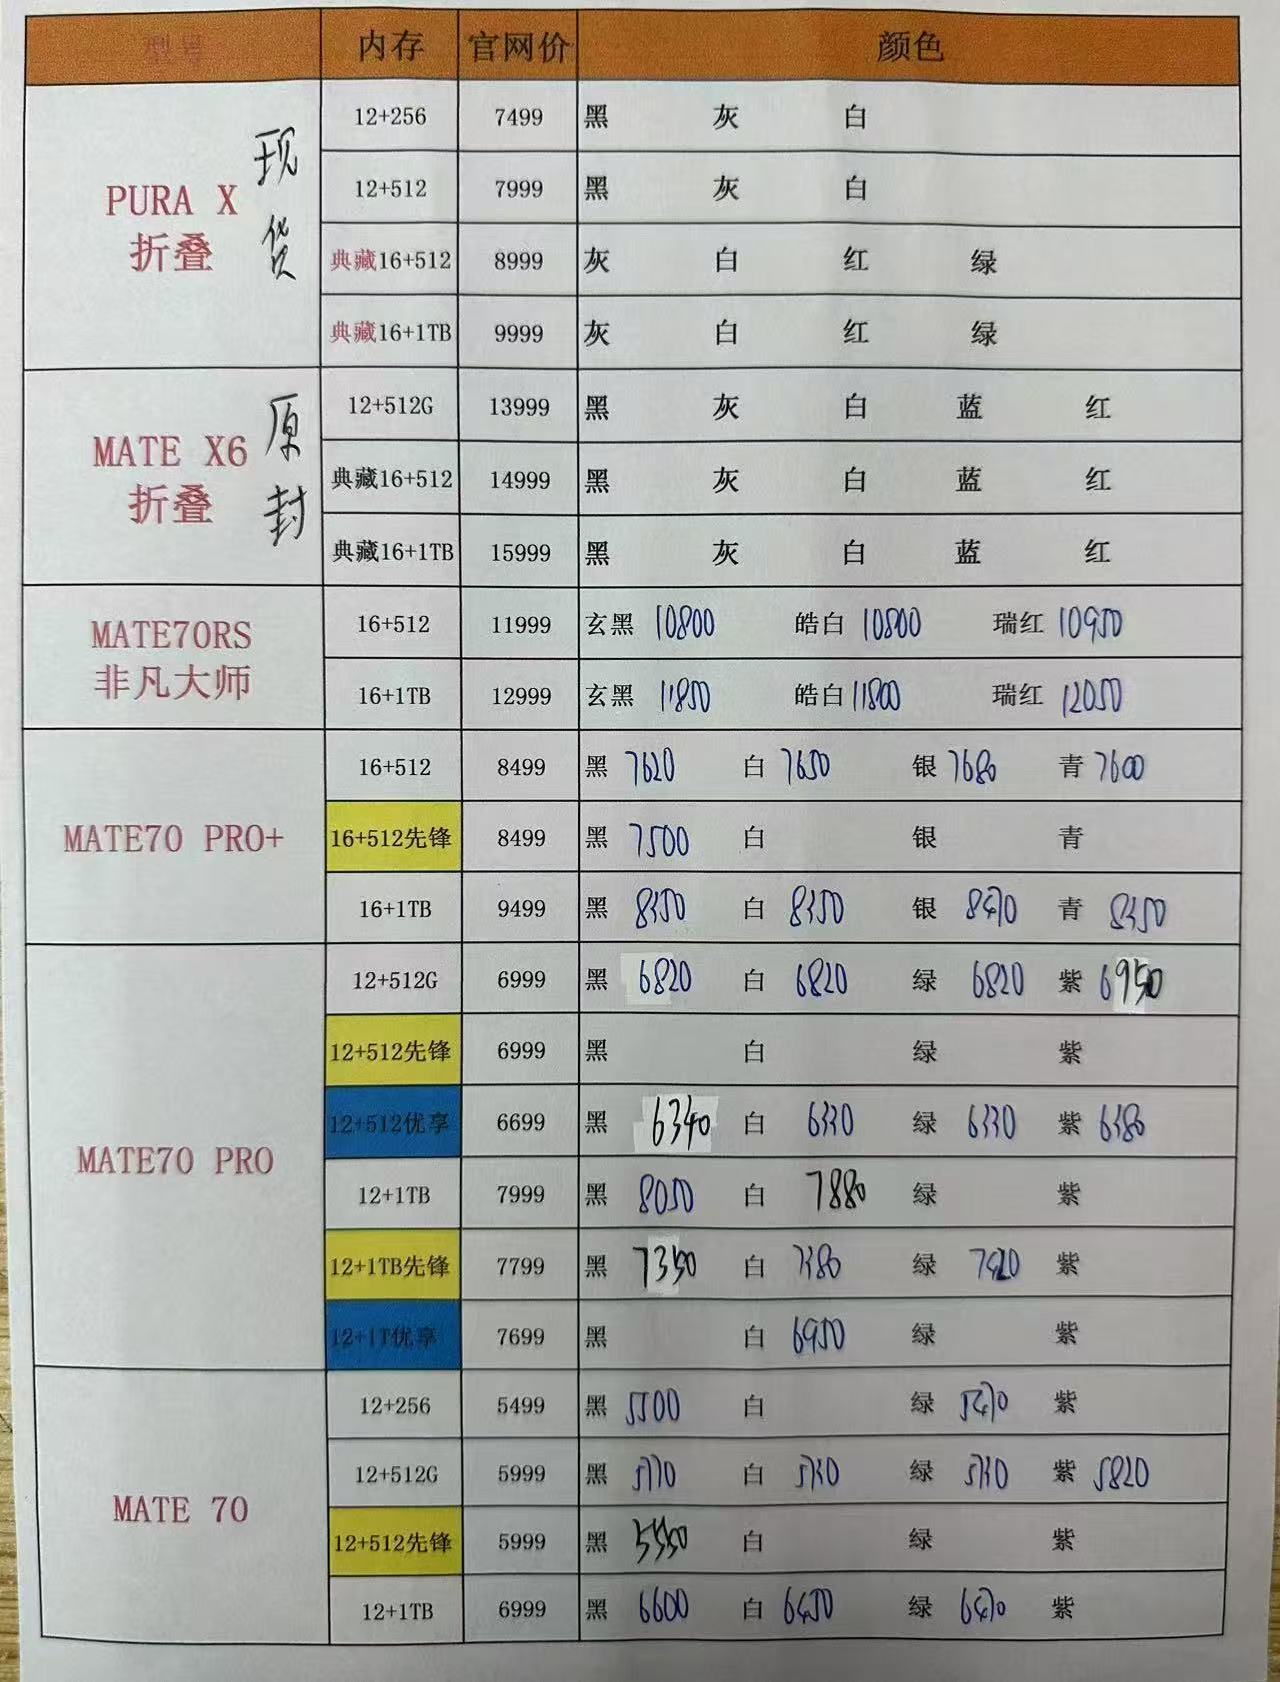 型号 内存 官网价 颜色
PURA X 折叠 现货
12+256 7499 黑 灰 白
12+512 7999 黑 灰 白
典藏16+512 8999 灰 白 红 绿
典藏16+1TB 9999 灰 白 红 绿
MATE X6 折叠 原封
12+512G 13999 黑 灰 白 蓝 红
典藏16+512 14999 黑 灰 白 蓝 红
典藏16+1TB 15999 黑 灰 白 蓝 红
MATE70RS 非凡大师
16+512 11999 玄黑 10800 皓白 10800 瑞红 10950
16+1TB 12999 玄黑 11850 皓白 11800 瑞红 12050
MATE70 PRO+
16+512 8499 黑 7620 白 7650 银 7680 青 7600
16+512先锋 8499 黑 7500 白 银 青
16+1TB 9499 黑 8350 白 8350 银 8470 青 8350
MATE70 PRO
12+512G 6999 黑 6820 白 6820 绿 6820 紫 6950
12+512先锋 6999 黑 白 绿 紫
12+512优享 6699 黑 6340 白 6330 绿 6330 紫 6380
12+1TB 7999 黑 8050 白 7880 绿 紫
12+1TB先锋 7799 黑 7350 白 7380 绿 7420 紫
12+1T优享 7699 黑 白 6950 绿 紫
MATE 70
12+256 5499 黑 5500 白 绿 5470 紫
12+512G 5999 黑 5770 白 5730 绿 5730 紫 5820
12+512先锋 5999 黑 5550 白 绿 紫
12+1TB 6999 黑 6600 白 6450 绿 6470 紫